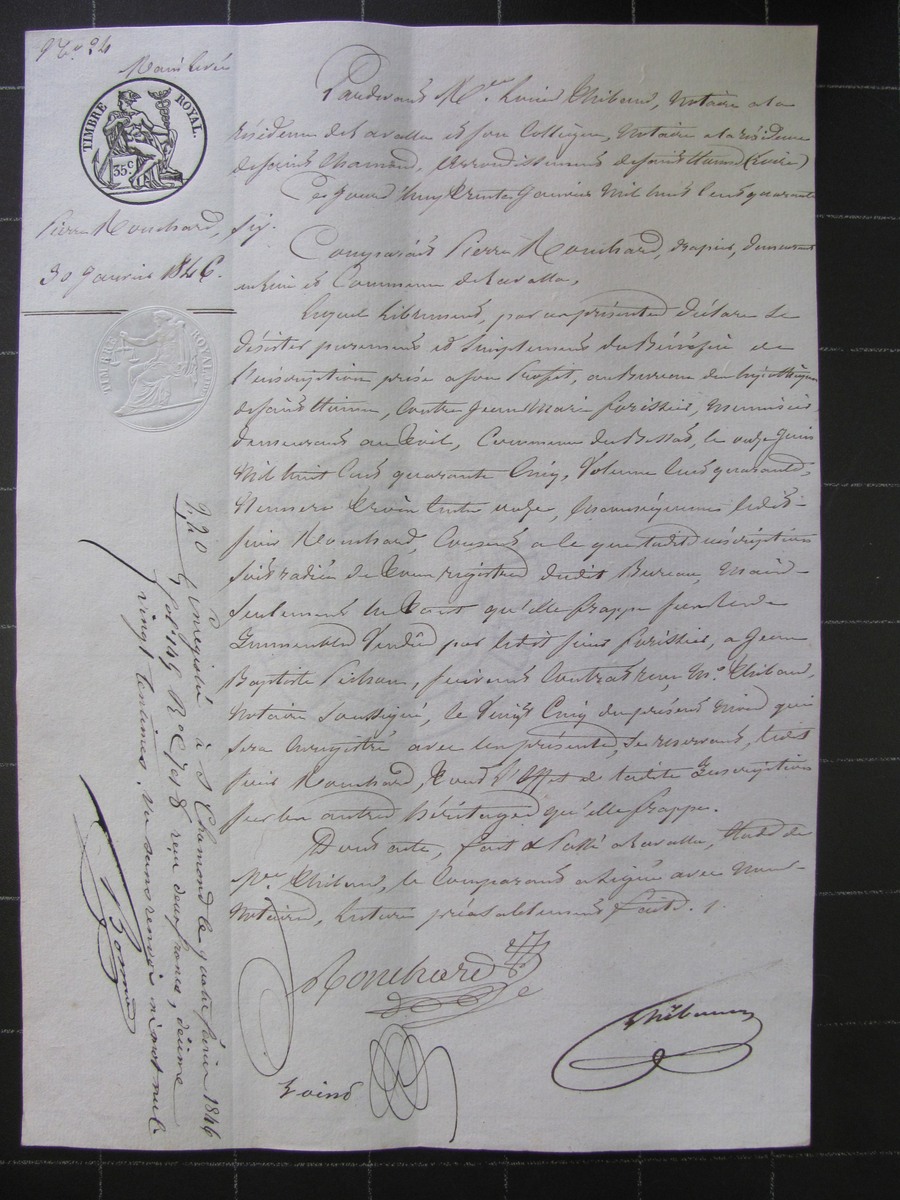 Main levée
TIMBRE ROYAL.
35 c
Pierre Rouchard,
30 Janvier 1846.
TIMBRE ROYAL
Pardevant Me Louis Thibaud, Notaire a la
résidence de Lavalla et son Collègue, Notaire a la résidence
de Saint Chamond, Arrondissement de Saint Etienne (Loire)
Ce jourd'huy trente Janvier Mil huit Cent quarante
Six.
Comparait Pierre Rouchard, drapier, demeurant
en lieu et Commune de Lavalla,
Lequel librement, par ces présentes déclare Se
désister purement et Simplement du Bénéfice de
l'inscription prise a son Profit, au Bureau des hypothèques
de Saint Etienne, Contre Jean Marie Forissier, Menuisier,
demeurant au Toil, Commune du Bessat, le onze Juin
Mil huit Cent quarante Cinq, Volume Cent quarante,
Numero trois Cent onze, En conséquence ledit
Sieur Rouchard, Consent a ce que ladite inscription
Soit radiée de tous registres dudit Bureau, Mais
Seulement en tant qu'elle frappe Sur les
Immeubles Vendus par ledit Sieur Forissier, a Jean
Baptiste Pichon, Suivant Contrat reçu Me Thibaud,
Notaire Soussigné, le Vingt Cinq du présent Mois qui
Sera Enregistré avec les présentes, Se reservant, ledit
Sieur Rouchard, tout l'Effet de ladite Inscription
Sur les autres héritages qu'elle frappe.
Dont acte, fait & Passé a Lavalla, Etude de
Me Thibaud, le Comparant a Signé avec Nous
Notaires, lecture préalablement faite.
Rouchard
Thibaud
Enregistré à St Chamond le quatre février 1846
fol. 145 Ro C. 7 et 8 reçu deux francs, décime
vingt centimes. Vu sans renvoi ni mot nul